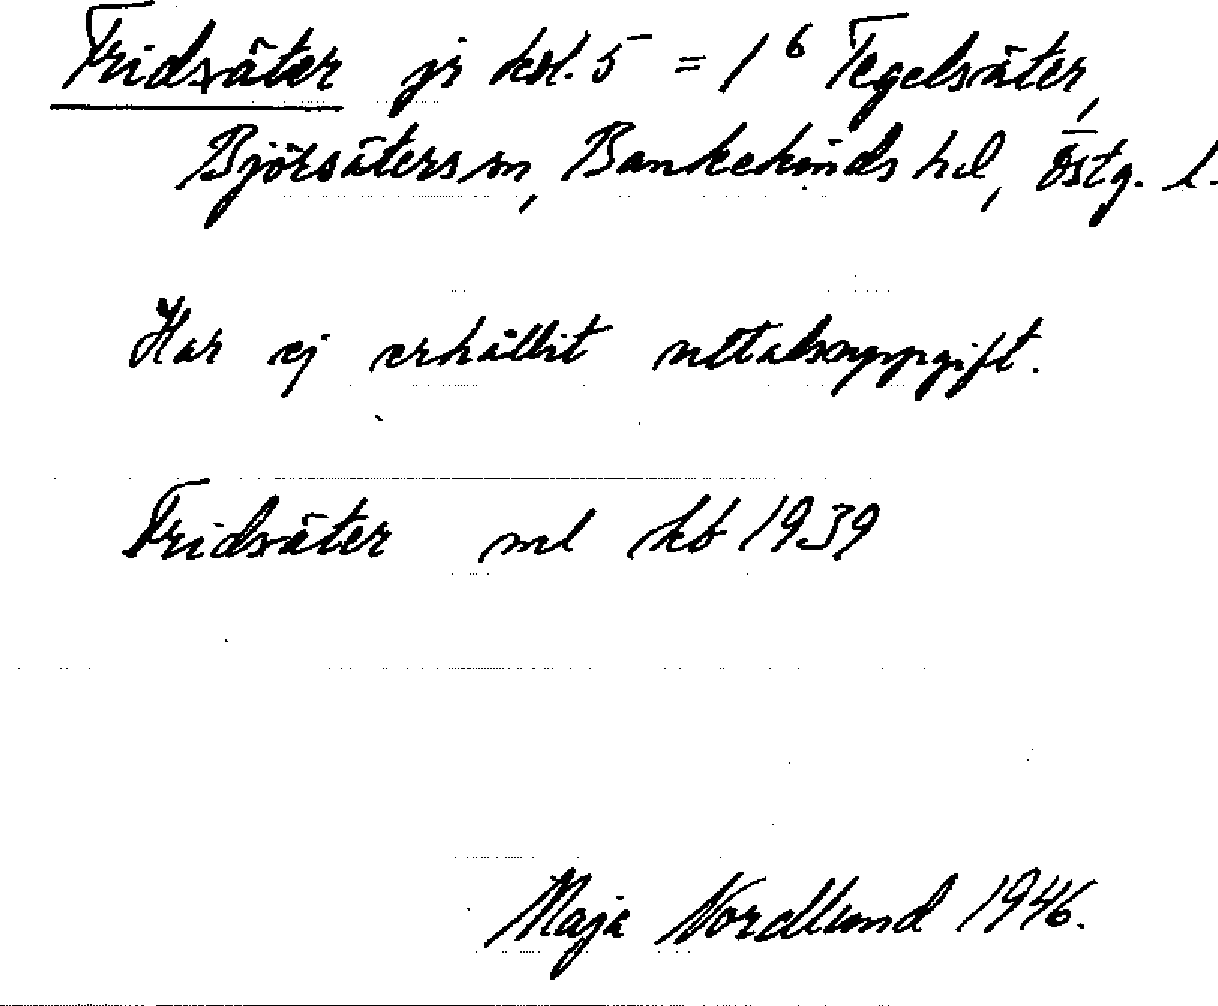 Fridsäter js kbl. 5 = 1⁶ Tegelsäter,
Björsäters sn, Bankekinds hd, Östg. l.
Har ej erhållit uttalsuppgift.
Fridsäter ml kb 1939
Maja Nordlund 1946.